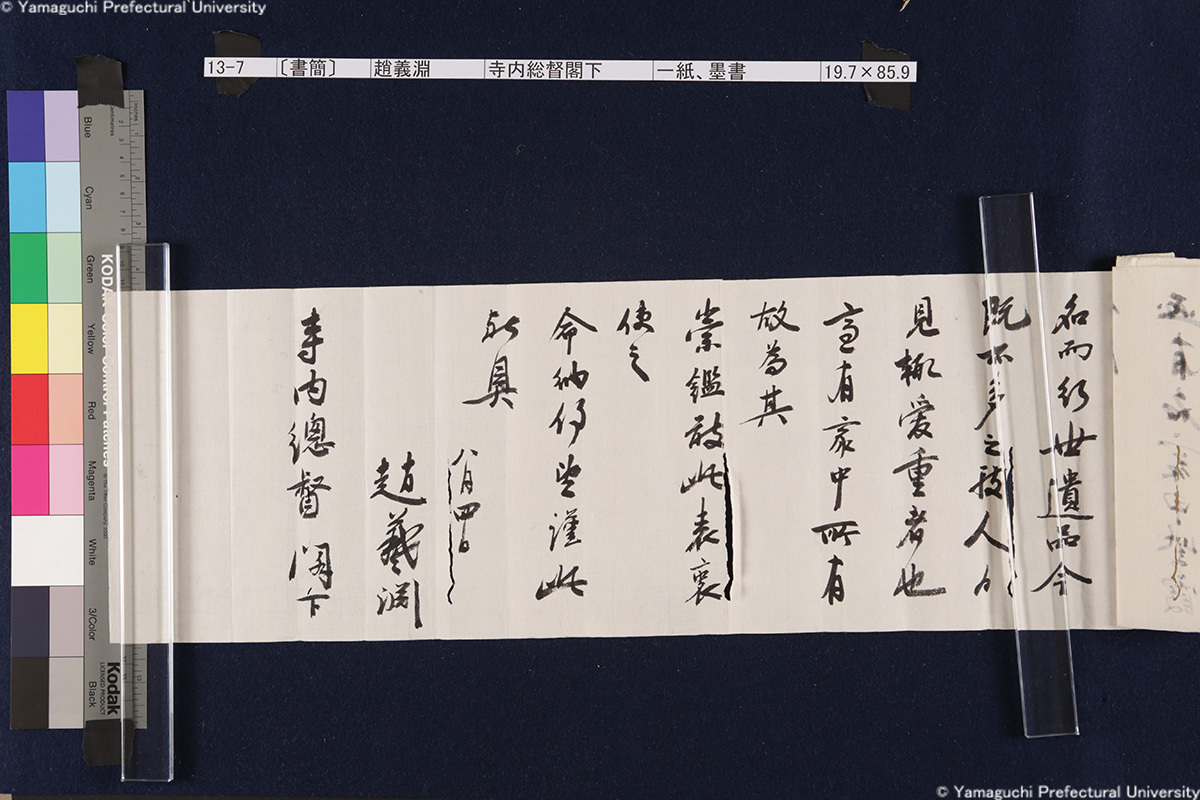 © Yamaguchi Prefectural University
13-7 〔書簡〕 趙義淵 寺内総督閣下 一紙、墨書 19.7×85.9
名而行世遺品今
既不多之故人的
見輒愛重者也
有家中所有
故為其
崇鑑玆此表衷
使之
命納伏望謹此
敬具
八月四日
趙羲淵
寺內總督閣下
Blue
Cyan
Green
Yellow
Red
Magenta
White
3/Color
Black
KODAK Color Control Patches
Kodak
LICENSED PRODUCT
© Yamaguchi Prefectural University